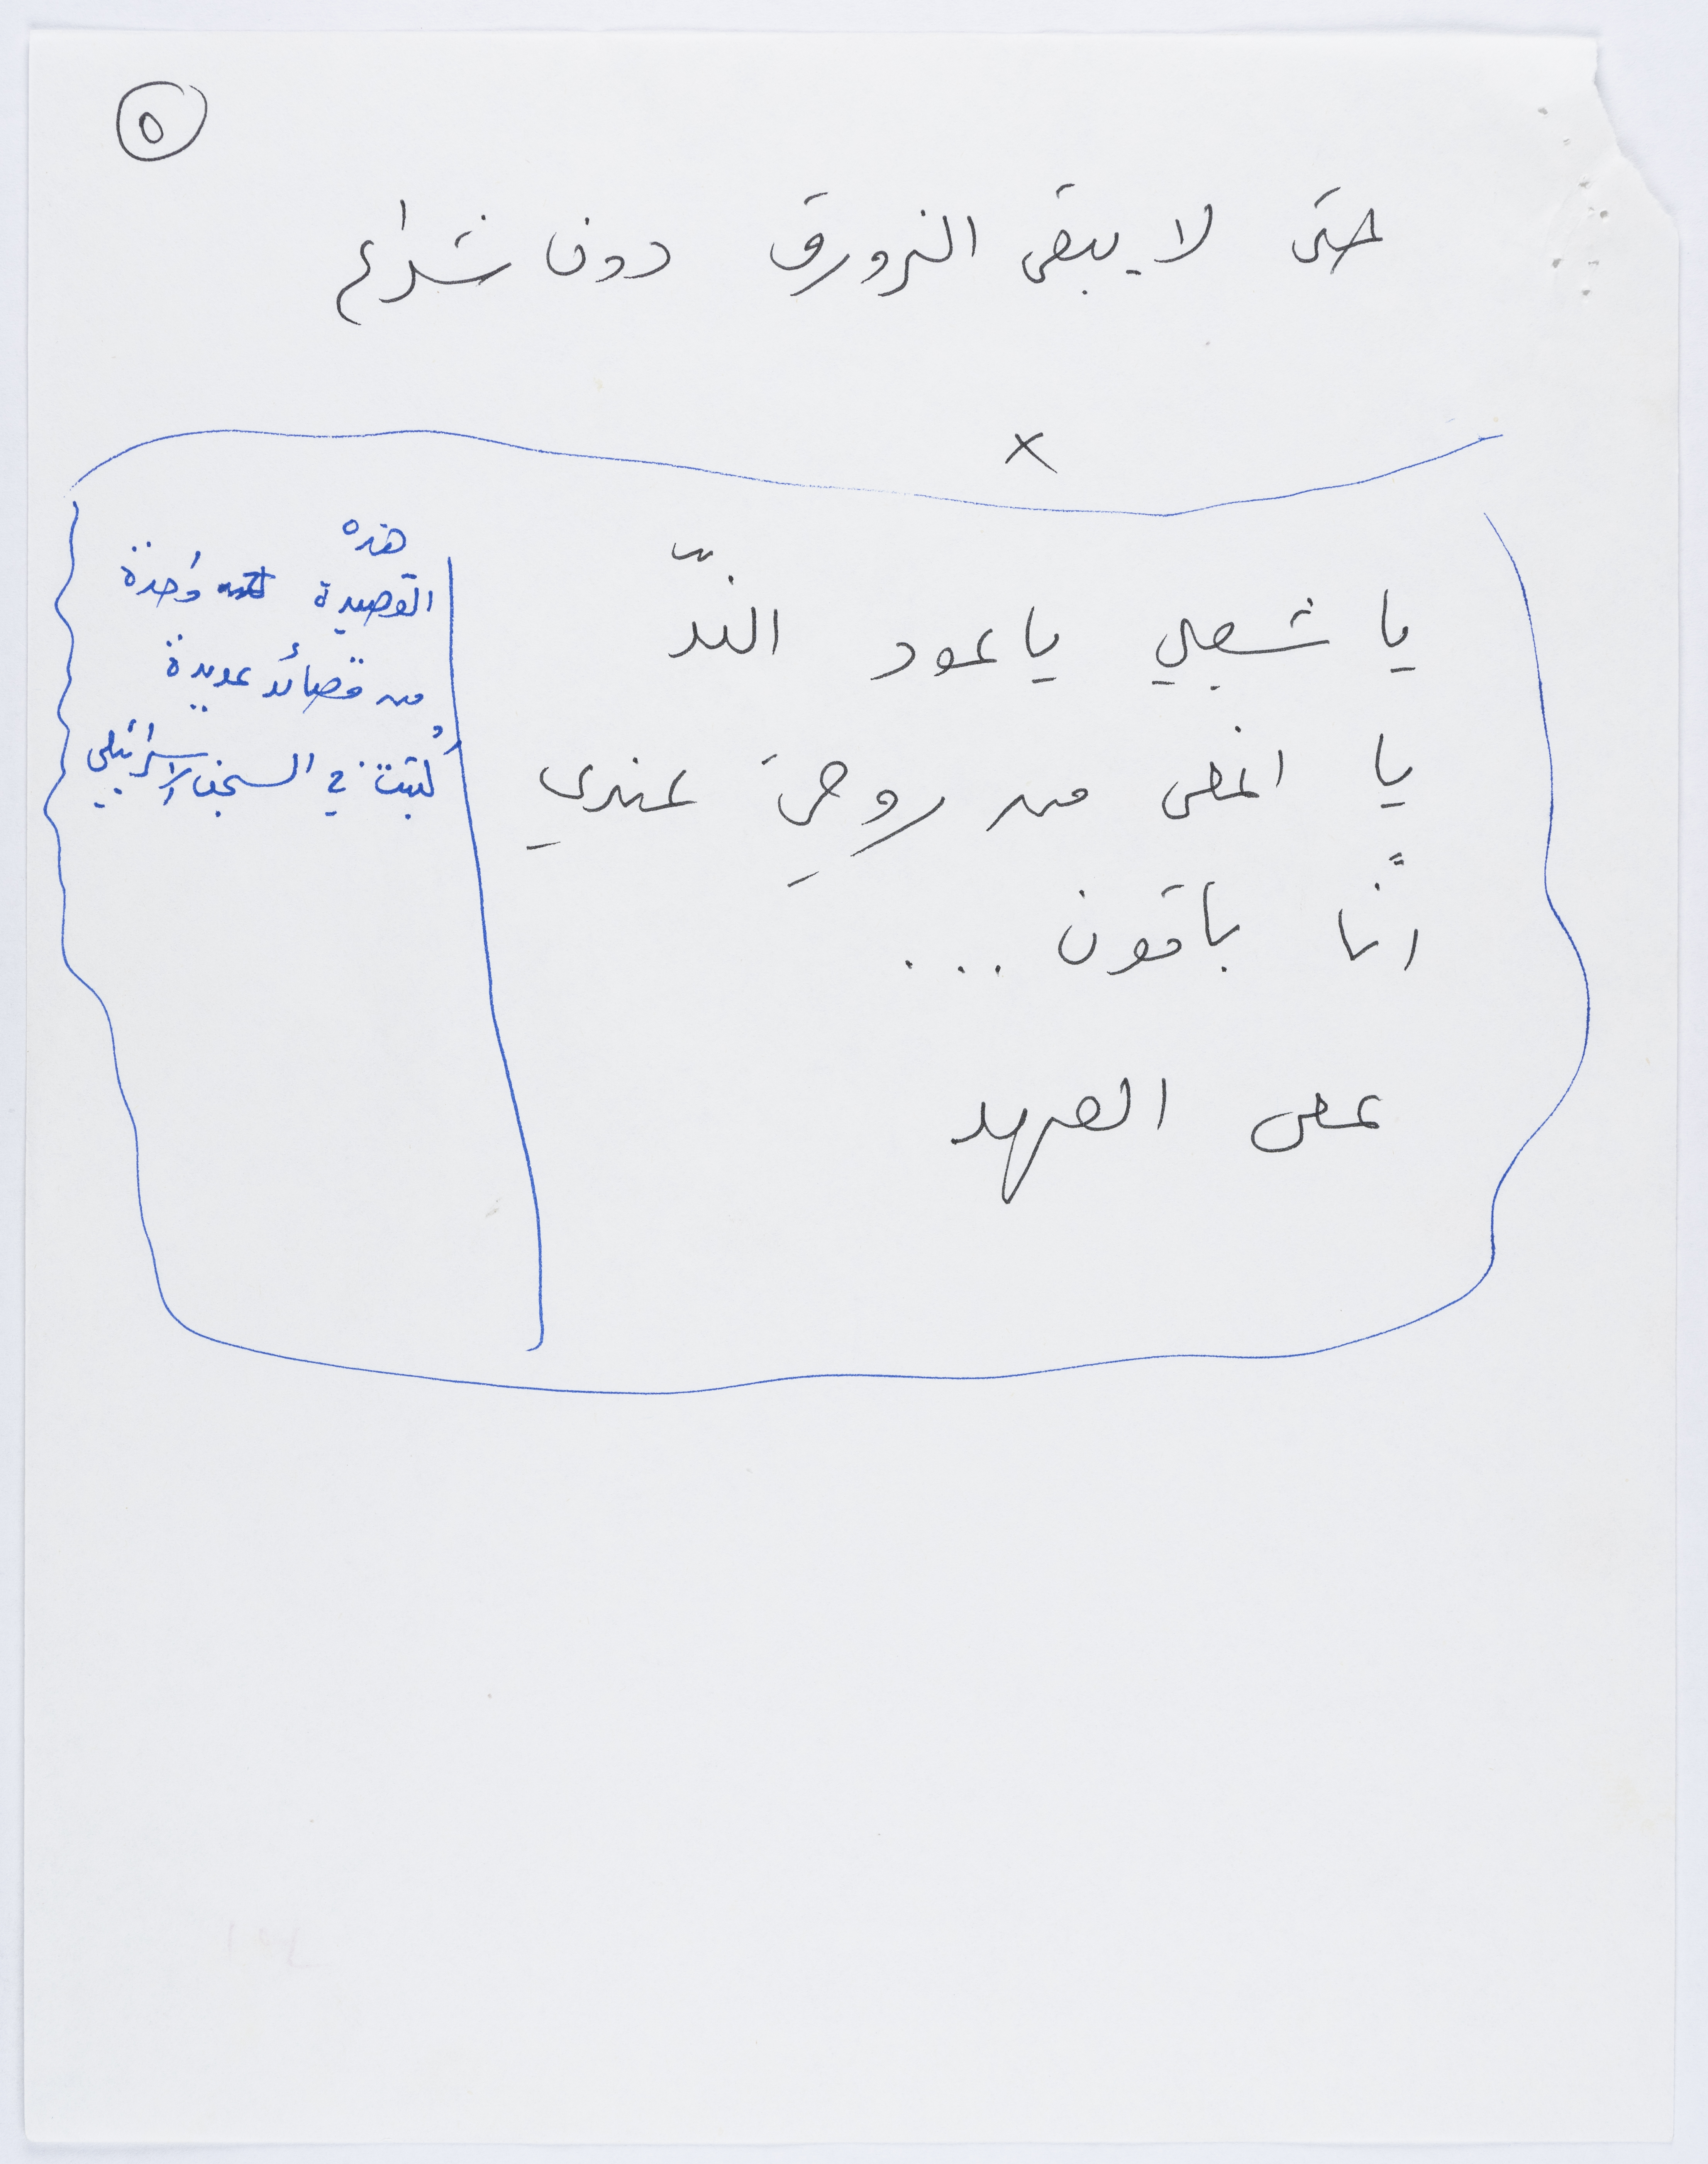 ٥
حتى لا يبقى الزورق دون شراع
×
يا شعبي يا عود النّدّ
يا اغلى من روحِيَ عندي
انَّا باقون ...
على العهد
هذه
القصيدة واحدة
من قصائد عديدة
كُتبت في السجن الاسرائيلي